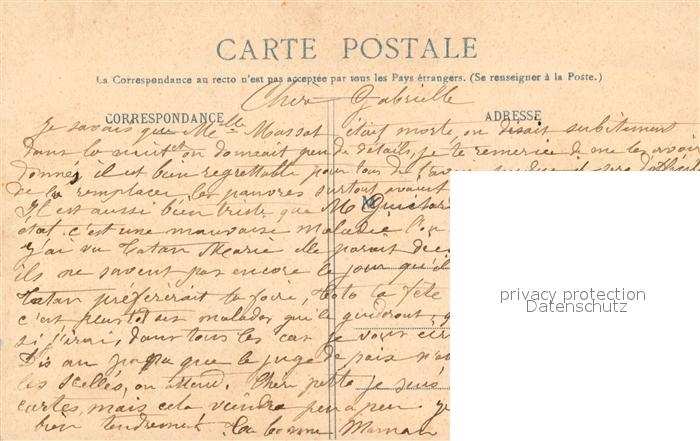 CARTE POSTALE
La Correspondance au recto n'est pas acceptée par tous les Pays étrangers. (Se renseigner à la Poste.)
CORRESPONDANCE
ADRESSE
Chère Gabrielle
Je savais que Melle Massot était morte, on disait subitement
dans la nuit et on donnait peu de détails, je te remercie de me les avoir
donnés, il est bien regrettable pour tous de l'avoir perdue il sera difficile
de la remplacer les pauvres surtout avaient
Il est aussi bien triste que Mr
état c'est une mauvaise maladie
J'ai vu Tatan Marie elle parait
ils ne savent pas encore le jour qu'il
Tatan préfererait la foire, Toto la fête
c'est plustot ses malades qui le guideront,
si j'irai, dans tous les cas je vous
Dis au papa que le juge de paix n'a
les scellés, on attend. Chère petite je suis
cartes, mais cela viendra peu a peu. je
bien tendrement. Ta bonne Maman
privacy protection
Datenschutz